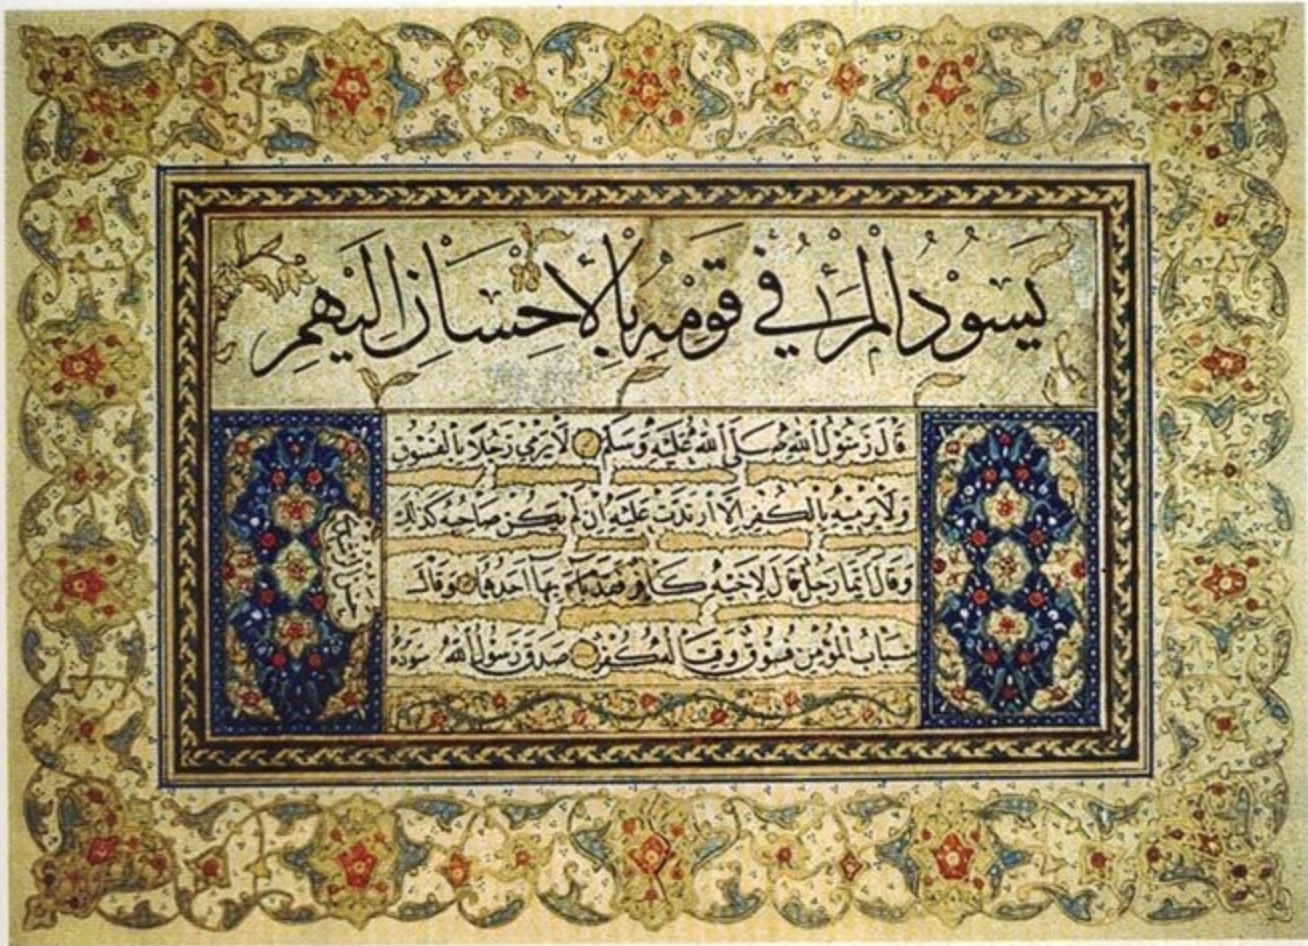 يَسُوْدُ الْمَرْءُ فِي قَوْمِهِ بِالْأِحْسَانِ اِلَيْهِمْ
قَالَ رَسُوْلُ اللّٰهِ صَلَّى اللّٰهُ عَلَيْهِ وَسَلَّمْ لَا يَرْمِي رَجُلٌ رَجُلًا بِالْفُسُوْقِ
وَلَا يَرْمِيْهِ بِالْكُفْرِ اِلَّا اْرتَدَّتْ عَلَيْهِ اِنْ لَمْ يَكُنْ صَاحِبُهُ كَذٰلِكَ
وَقَالَ اَيُّمَا رَجُلٍ قَالَ لِاَخِيْهِ كَافِرٌ فَقَدْ بَاءَ بِهَا اَحَدُهُمَا وَقَالَ
سِبَابُ الْمُؤْمِنِ فُسُوْقٌ وَقِتَالُهُ كُفْرٌ صَدَقَ رَسُوْلُ اللّٰهِ سَوَّدَهُ